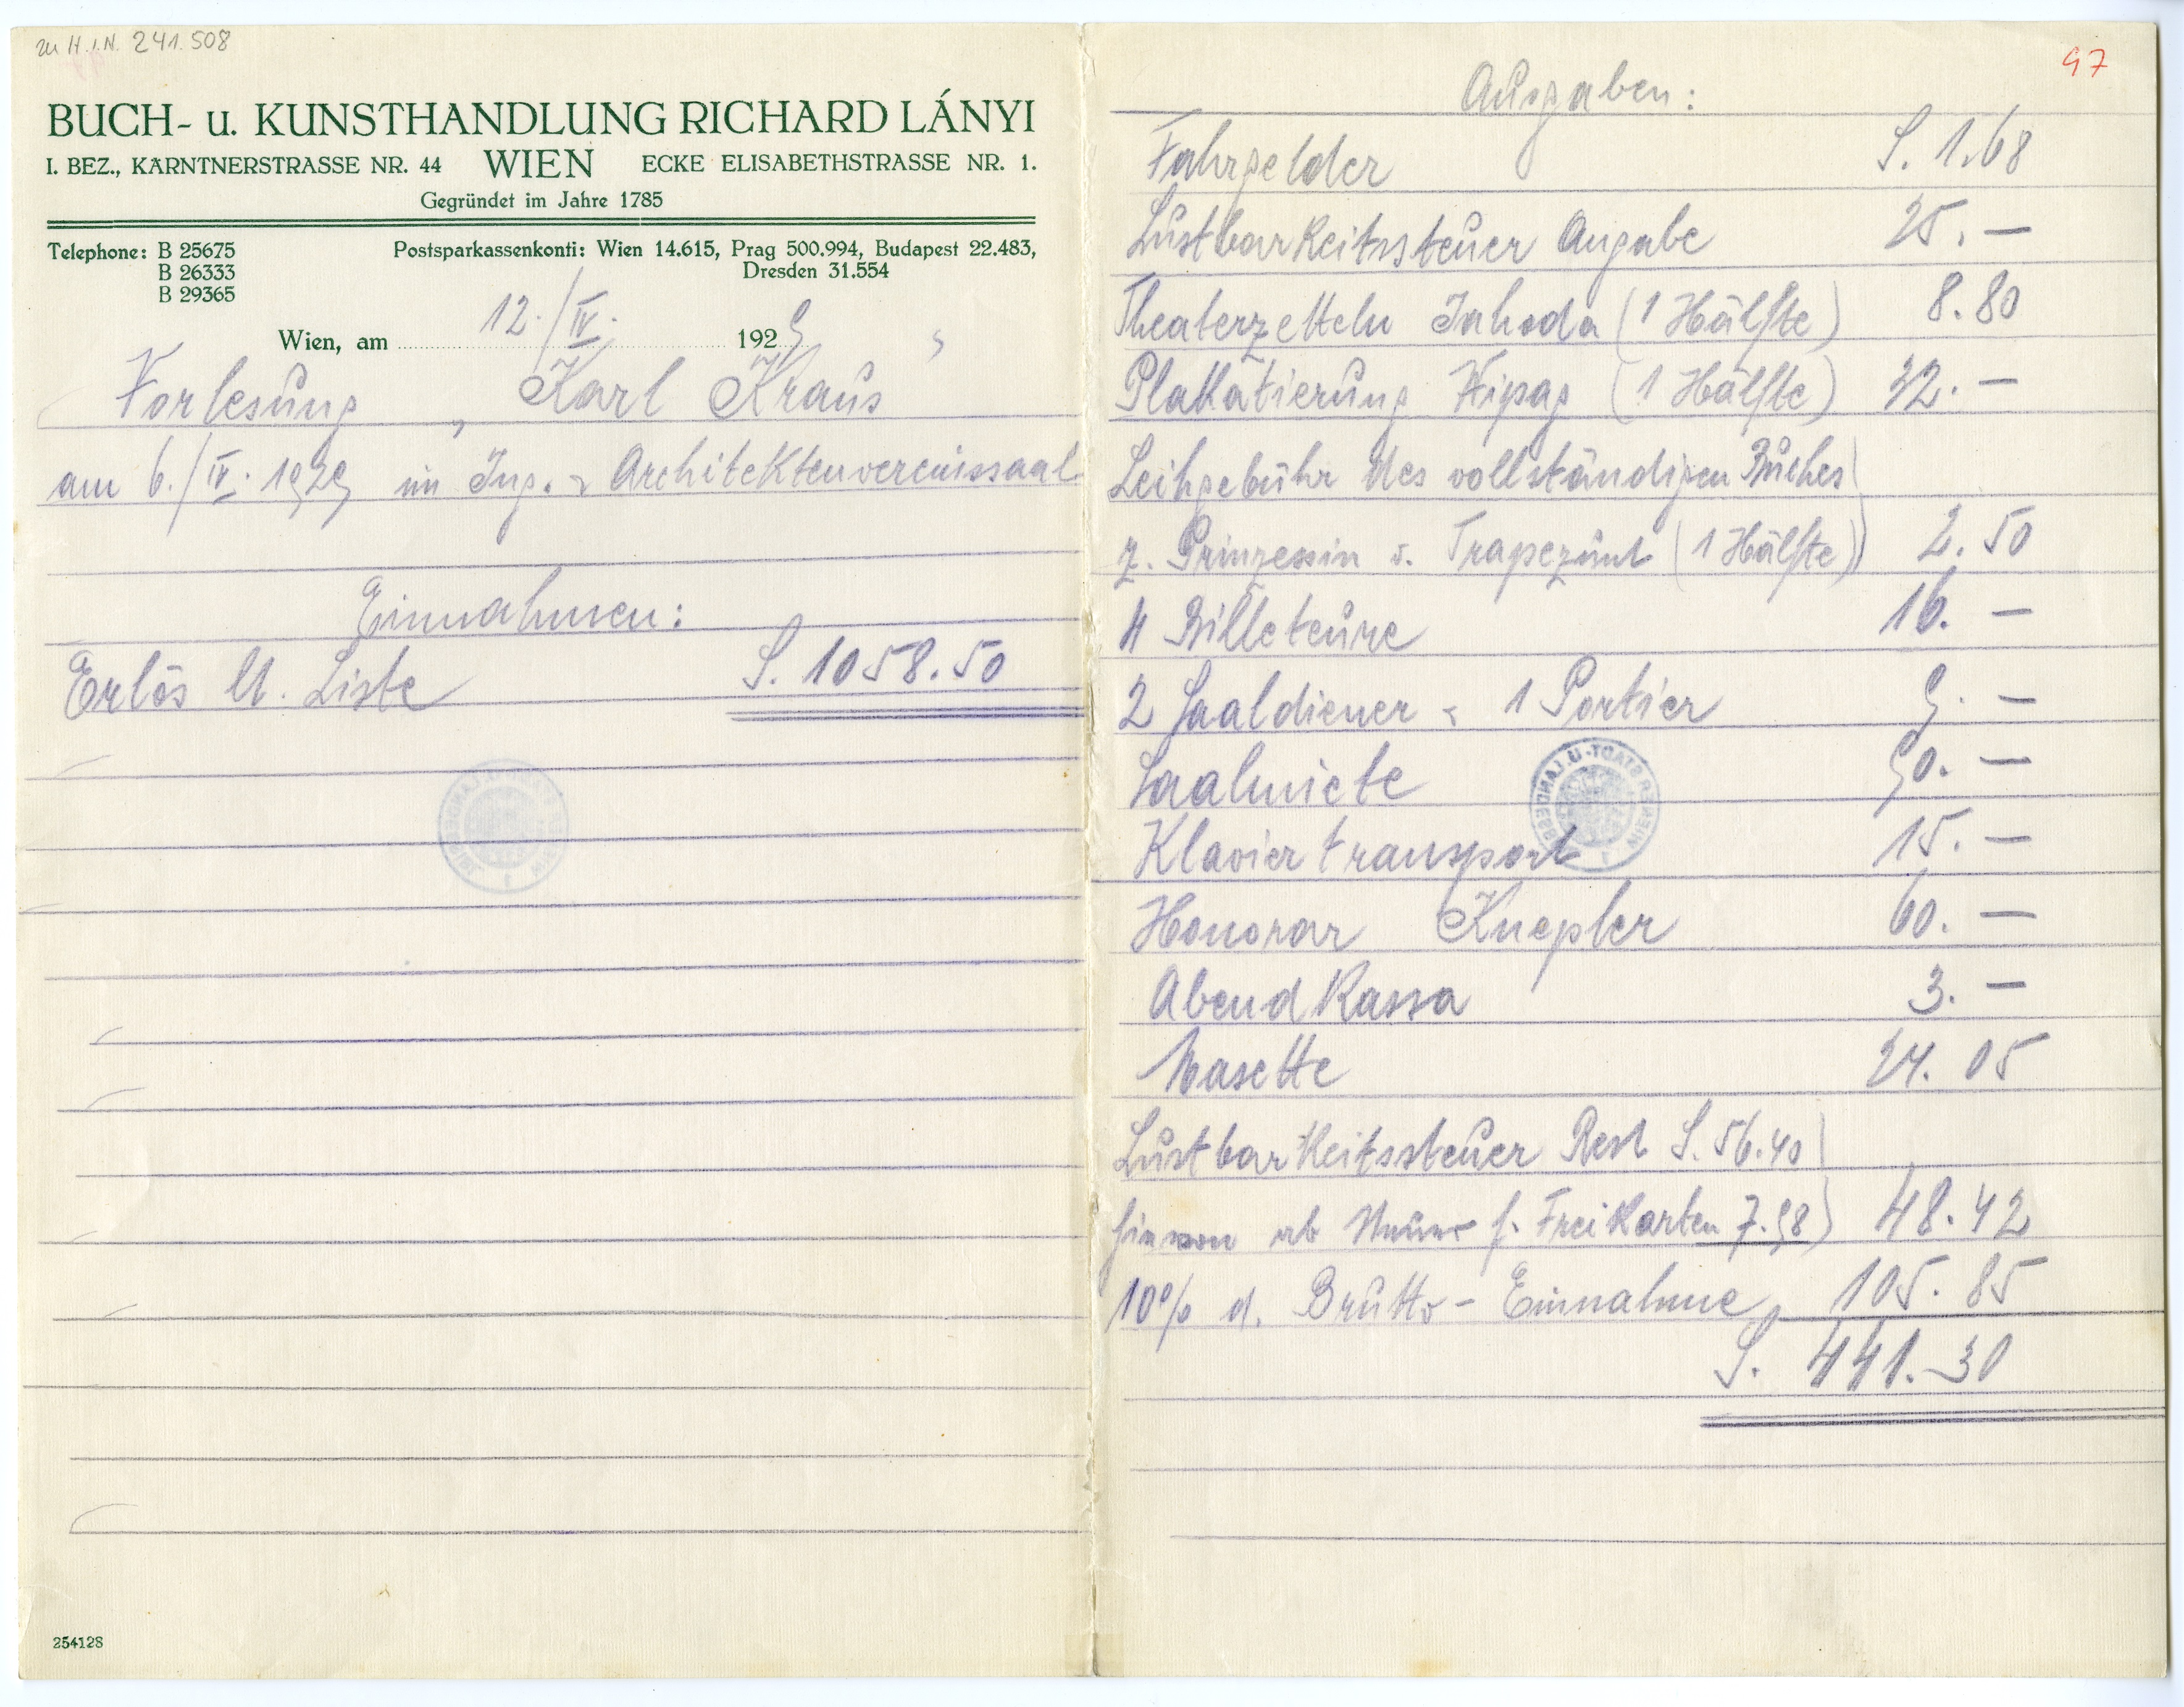 zu H.I.N. 241.508
BUCH- u. KUNSTHANDLUNG RICHARD LÁNYI
I. BEZ., KÄRNTNERSTRASSE NR. 44 WIEN ECKE ELISABETHSTRASSE NR. 1.
Gegründet im Jahre 1785
Telephone: B 25675
B 26333
B 29365
Postsparkassenkonti: Wien 14.615, Prag 500.994, Budapest 22.483,
Dresden 31.554
Wien, am 12./IV. 1929
Vorlesung „Karl Kraus"
am 6./IV. 1929 im Ing. & Architektenvereinssaal
Einnahmen:
Erlös lt. Liste S. 1058.50
254128
97
Ausgaben:
Fahrgelder S. 1.68
Lustbarkeitssteuer Angabe 25.—
Theaterzetteln Jahoda (1 Hälfte) 8.80
Plakatierung Wipag (1 Hälfte) 32.—
Leihgebühr des vollständigen Buches
z. Prinzessin v. Trapezunt (1 Hälfte) 2.50
4 Billeteure 16.—
2 Saaldiener & 1 Portier 9.—
Saalmiete 90.—
Klaviertransport 15.—
Honorar Knepler 60.—
Abendkassa 3.—
24.05
Lustbarkeitssteuer Rest S. 56.40
hievon ab f. Freikarten 7.98 48.42
10% d. Brutto-Einnahme 105.85
S. 441.30